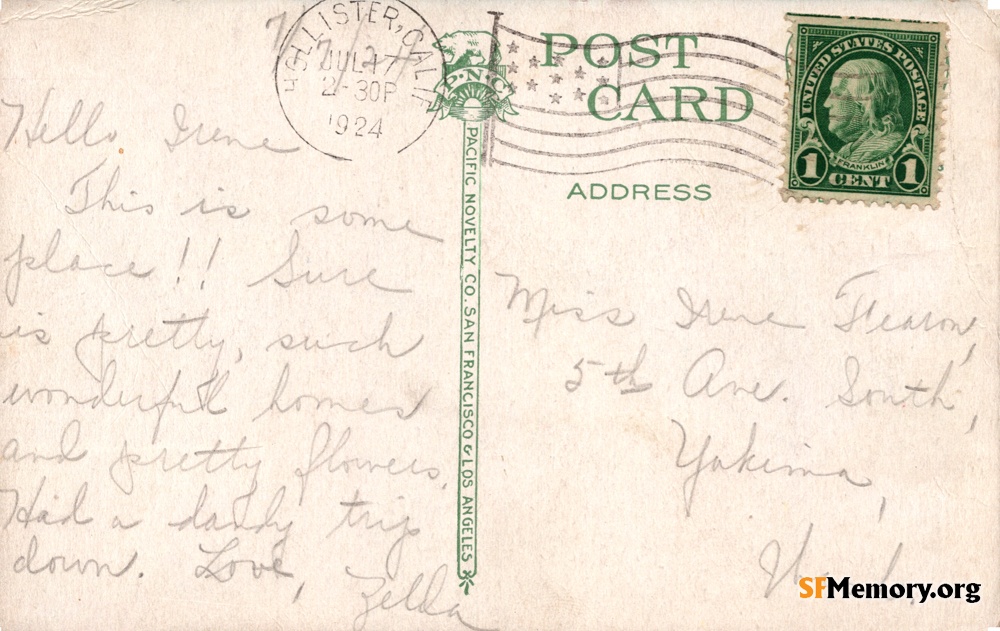 HOLLISTER, CALIF
JUL 17
2-30P
1924
P.N.C.
POST
CARD
UNITED STATES POSTAGE
FRANKLIN
1 CENT 1
ADDRESS
PACIFIC NOVELTY CO. SAN FRANCISCO & LOS ANGELES
Hello Irene
This is some
place!! Sure
is pretty, such
wonderful homes
and pretty flowers.
Had a dandy trip
down. Love,
Zelda
Miss Irene Fearon,
5th Ave. South,
Yakima,
SFMemory.org